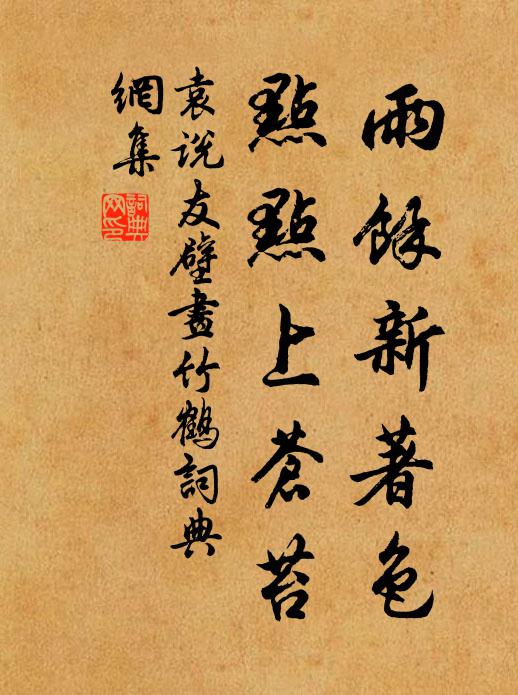 雨餘新著色
點點上蒼苔
袁说友壁畫竹鶴詞典
網集
詞典網印